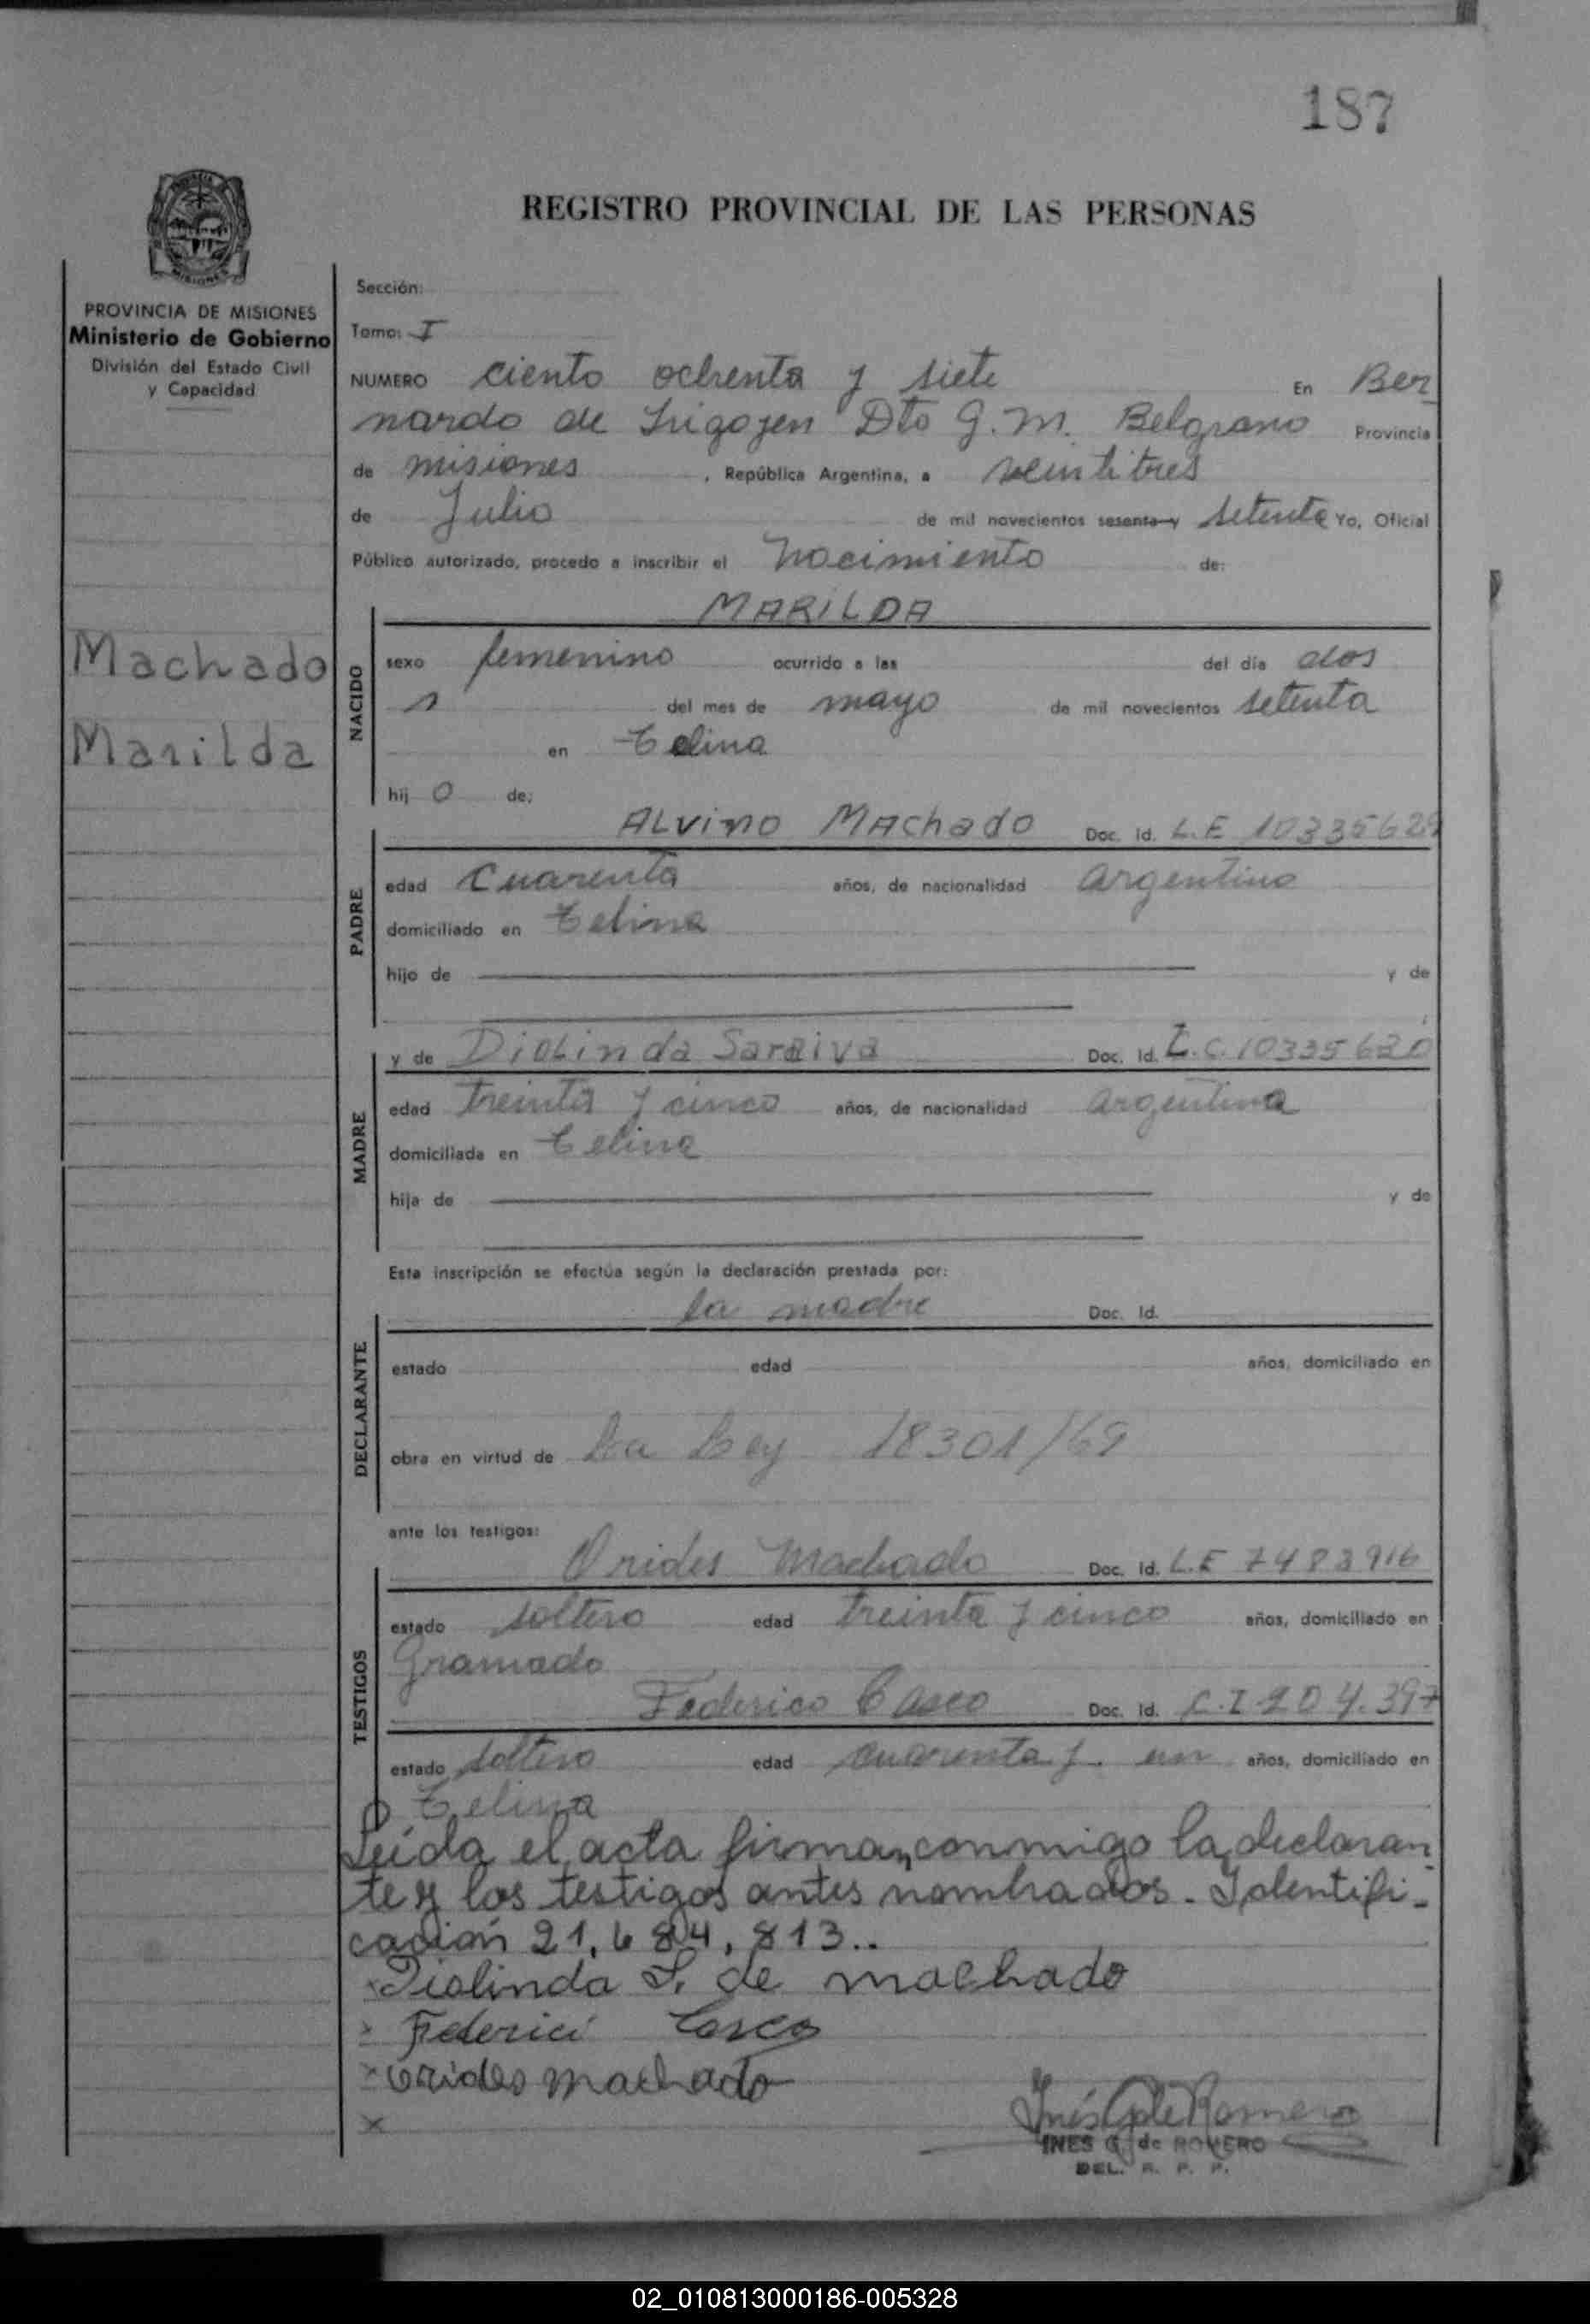 187
REGISTRO PROVINCIAL DE LAS PERSONAS
PROVINCIA DE MISIONES
Ministerio de Gobierno
División del Estado Civil
y Capacidad
Machado
Marilda
Sección:
Tomo: I
NUMERO ciento ochenta y siete En Ber
nardo de Irigoyen Dto G. M. Belgrano Provincia
de misiones, República Argentina, a veintitres
de Julio de mil novecientos sesenta y setenta Yo, Oficial
Público autorizado, procedo a inscribir el Nacimiento de:
MARILDA
NACIDO
sexo femenino ocurrido a las del día dos
del mes de mayo de mil novecientos setenta
en Celina
hij o de:
PADRE
ALvino MAchado Doc. Id. L.E 10335629
edad Cuarenta años, de nacionalidad argentino
domiciliado en Celina
hijo de y de
MADRE
y de Diolinda Saraiva Doc. Id. L.C. 10335630
edad treinta y cinco años, de nacionalidad argentina
domiciliada en Celina
hija de y de
Esta inscripción se efectúa según la declaración prestada por:
DECLARANTE
la madre Doc. Id.
estado edad años, domiciliado en
obra en virtud de La Ley 18301/69
ante los testigos:
TESTIGOS
Orides Machado Doc. Id. L.E 7483916
estado soltero edad treinta y cinco años, domiciliado en
Gramado
Federico Casco Doc. Id. C.I 204.397
estado soltero edad cuarenta y un años, domiciliado en
Celina
Leida el acta firman conmigo la declaran
te y los testigos antes nombrados. Identifi-
cación 21.684.813..
x Diolinda S. de machado
x Federici Casco
x Orides machado
x
Inés G de Romero
INES G. de ROMERO
DEL. R. P. P.
02_010813000186-005328